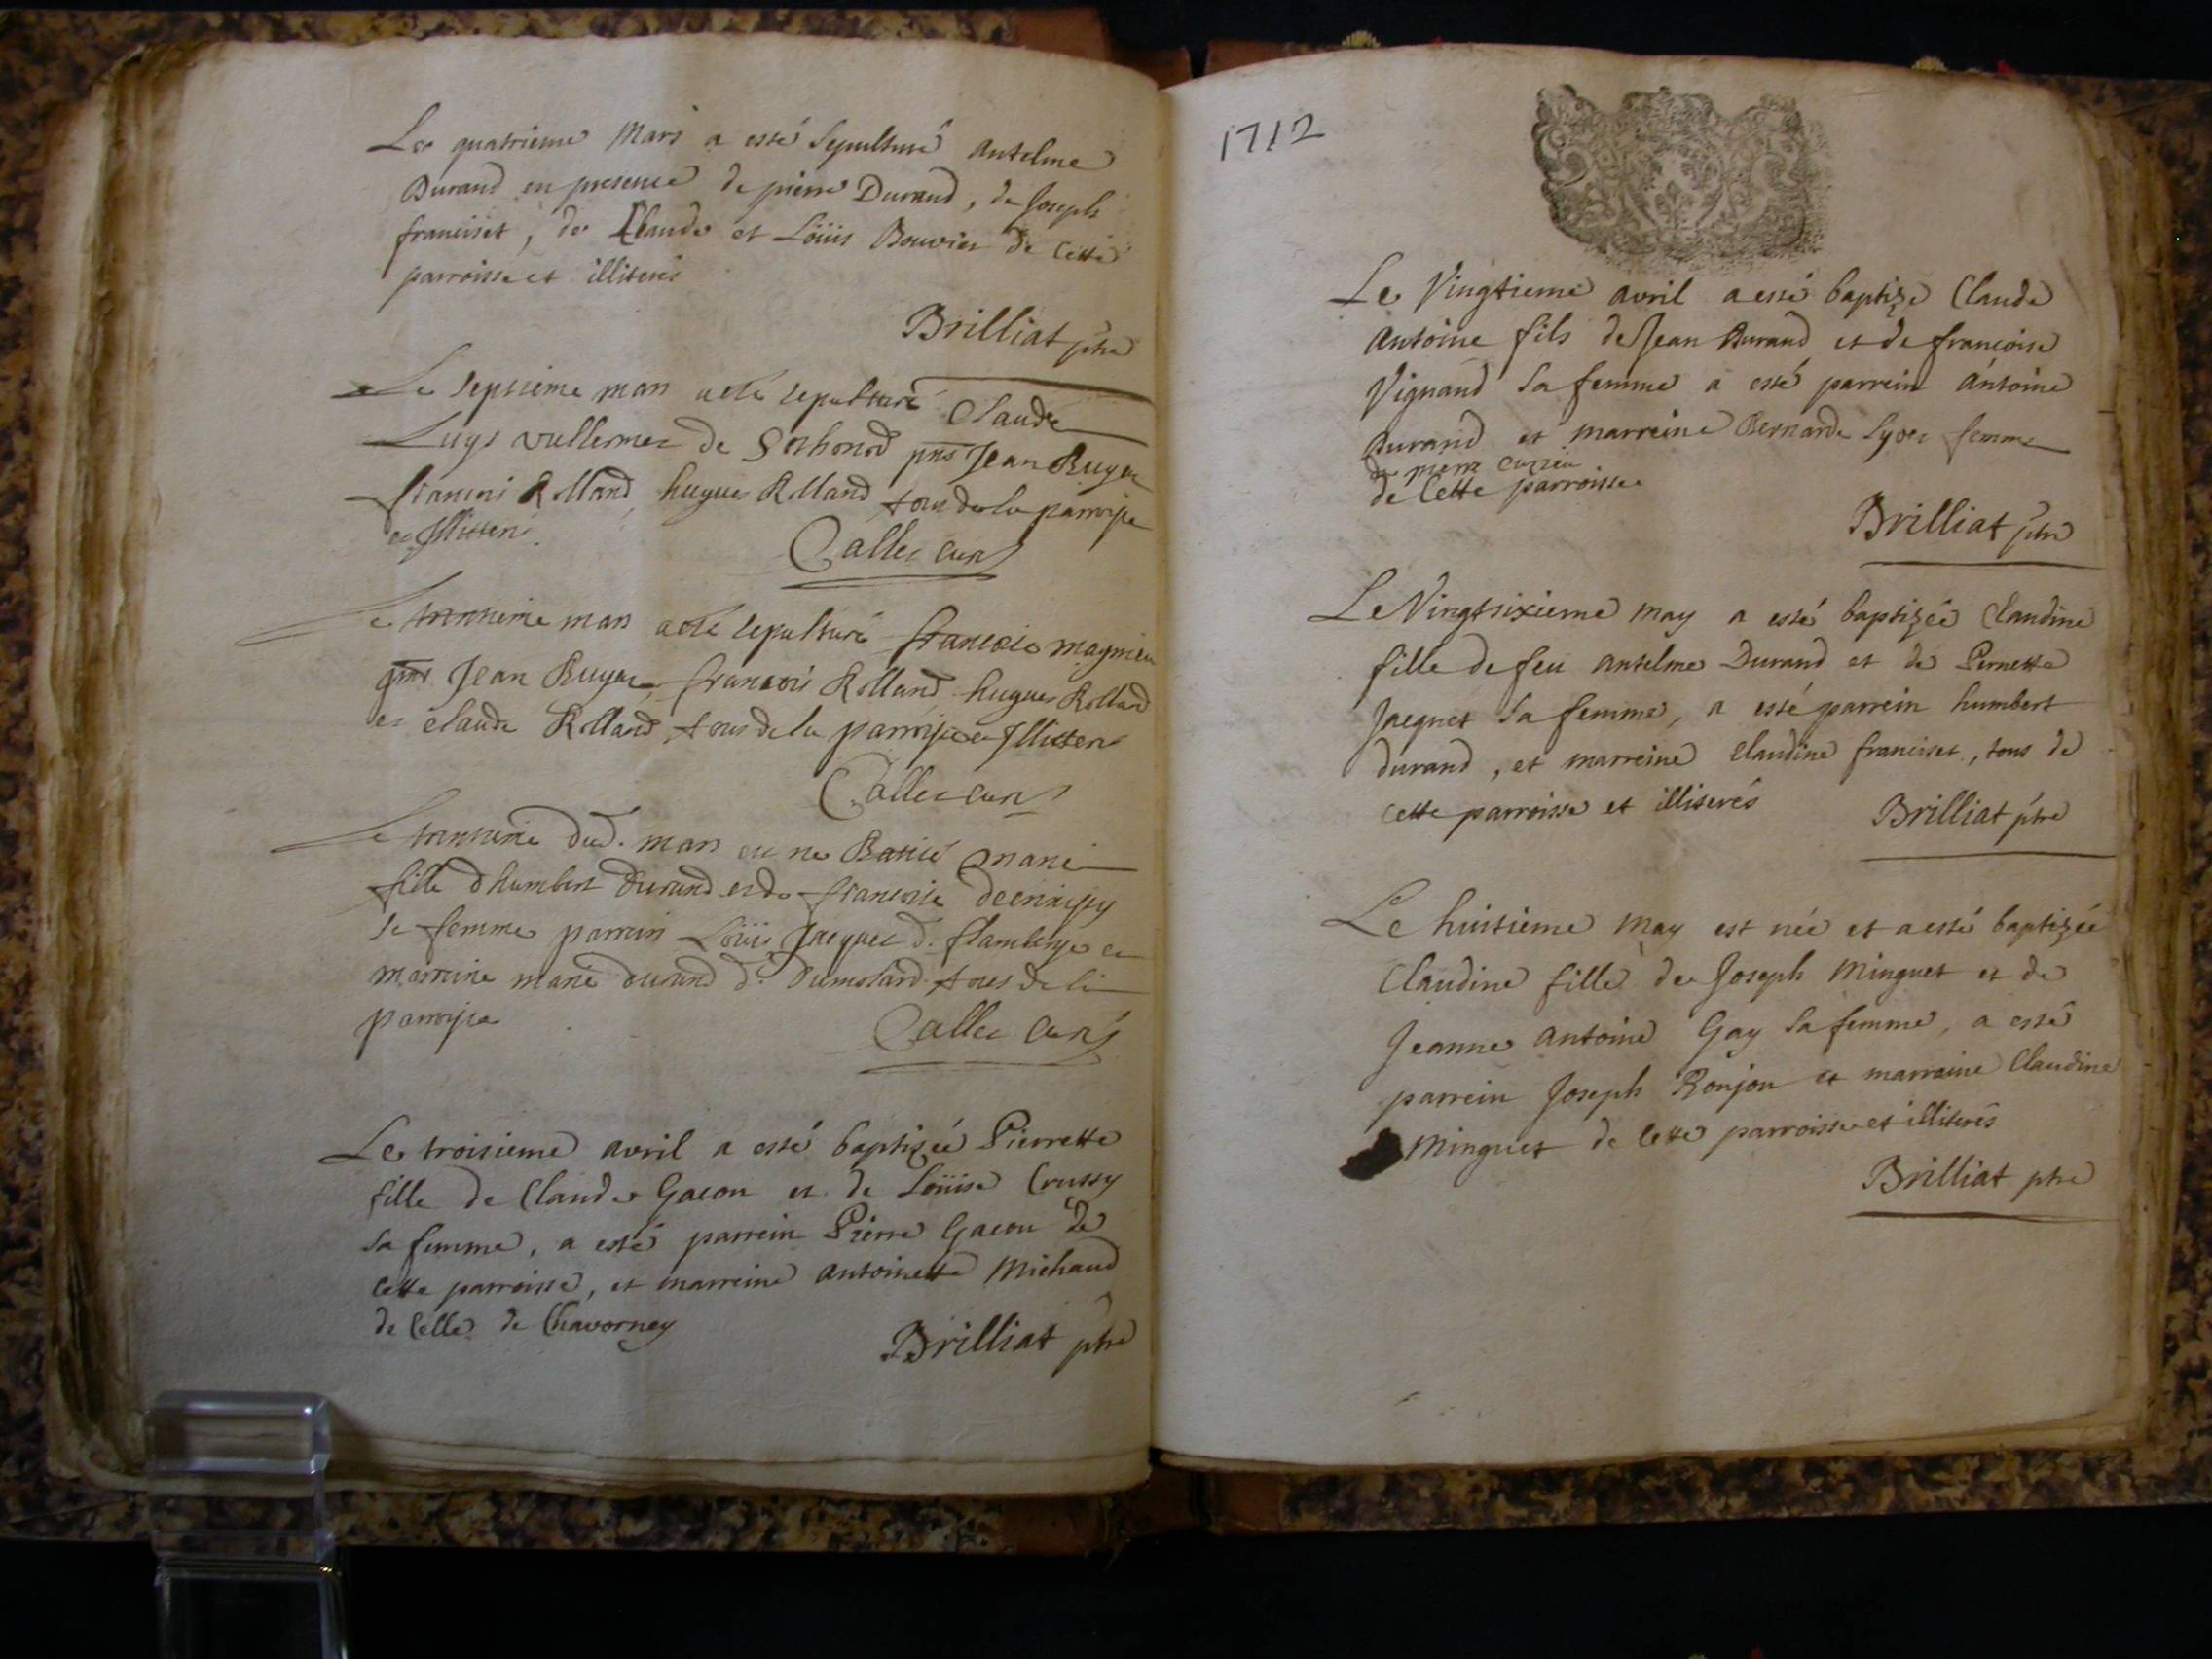 Le quatrieme Mars a esté sepulturé Antelme
Durand en presence de pierre Durand, de Joseph
franciset, de Claude et Loüis Bouvier de cette
parroisse et illiterés
Brilliat ptre
Le septieme mars a esté sepulturé Claude
Luys vullermet de pnts Jean Buyat
francois Rolland, hugues Rolland tous de la parroisse
et Illitteré
Callet curé
Le mars a esté sepulturé francois
pnts Jean Buyat francois Rolland hugues Rolland
et claude Rolland, tous de la parroisse et Illitteré
Callet curé
Le dud. mars est né Batisé marie
fille d'humbert Durand et de francoise
sa femme parrain Loüis Jacquet d.
marraine marie durand d. Dumolard tous de la
parroisse
Callet curé
Le troisieme avril a esté baptizée Pierrette
fille de Claude Gacon et de Loüise Crussy
sa femme, a esté parrein Pierre Gacon de
cette parroisse, et marreine Antoinette Michaud
de celle de Chavorney
Brilliat ptre
1712
Le Vingtieme avril a esté baptizé Claude
Antoine fils de Jean Durand et de francoise
Vignand sa femme a esté parrein Antoine
Durand et marreine Bernarde femme
de pierre
de cette parroisse
Brilliat ptre
Le Vingtsixieme may a esté baptizée Claudine
fille de feu Antelme Durand et de Pernette
Jacquet sa femme, a esté parrein humbert
durand, et marreine Claudine franciset, tous de
cette parroisse et illiterés
Brilliat ptre
Le huitieme may est née et a esté baptizée
Claudine fille de Joseph Minguet et de
Jeanne Antoine Gay sa femme, a esté
parrein Joseph Ronjon et marraine Claudine
Minguet de cette parroisse et illiterés
Brilliat ptre